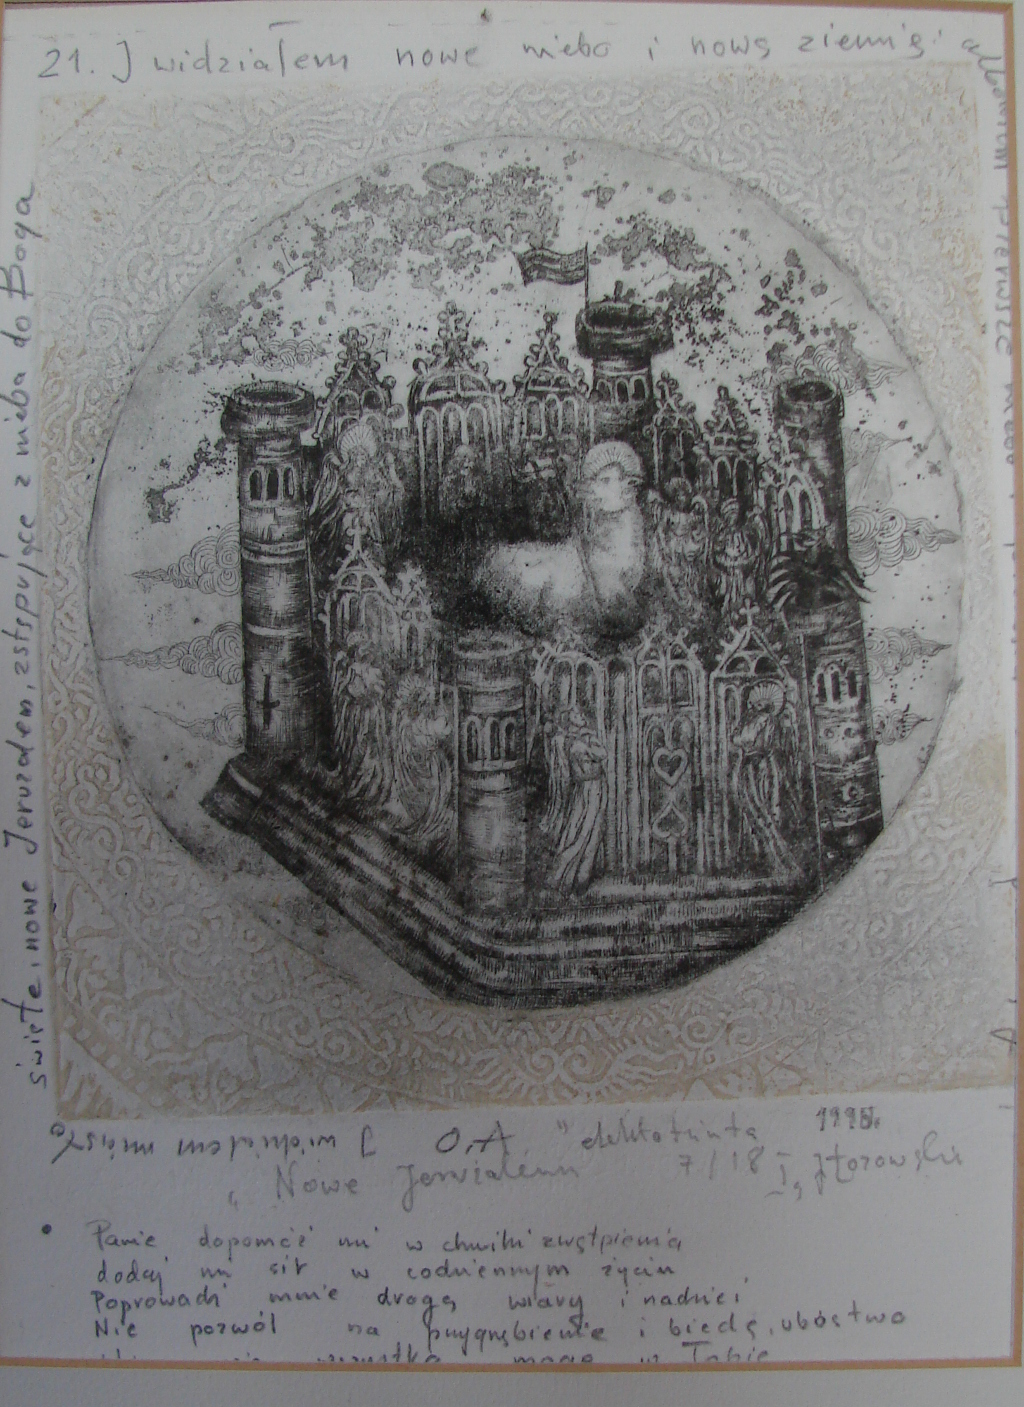 21. I widziałem nowe niebo i nową ziemię:
albowiem pierwsze niebo i
I widziałem miasto
święte, nowe Jeruzalem, zstępujące z nieba do Boga
O,A "akwatinta 1995r.
"Nowe Jeruzalem 7/18
Panie dopomóż mi w chwili zwątpienia
dodaj mi sił w codziennym życiu
Poprowadź mnie drogą wiary i nadziei
Nie pozwól na przygnębienie i biedę, ubóstwo
wszystko mogę w Tobie